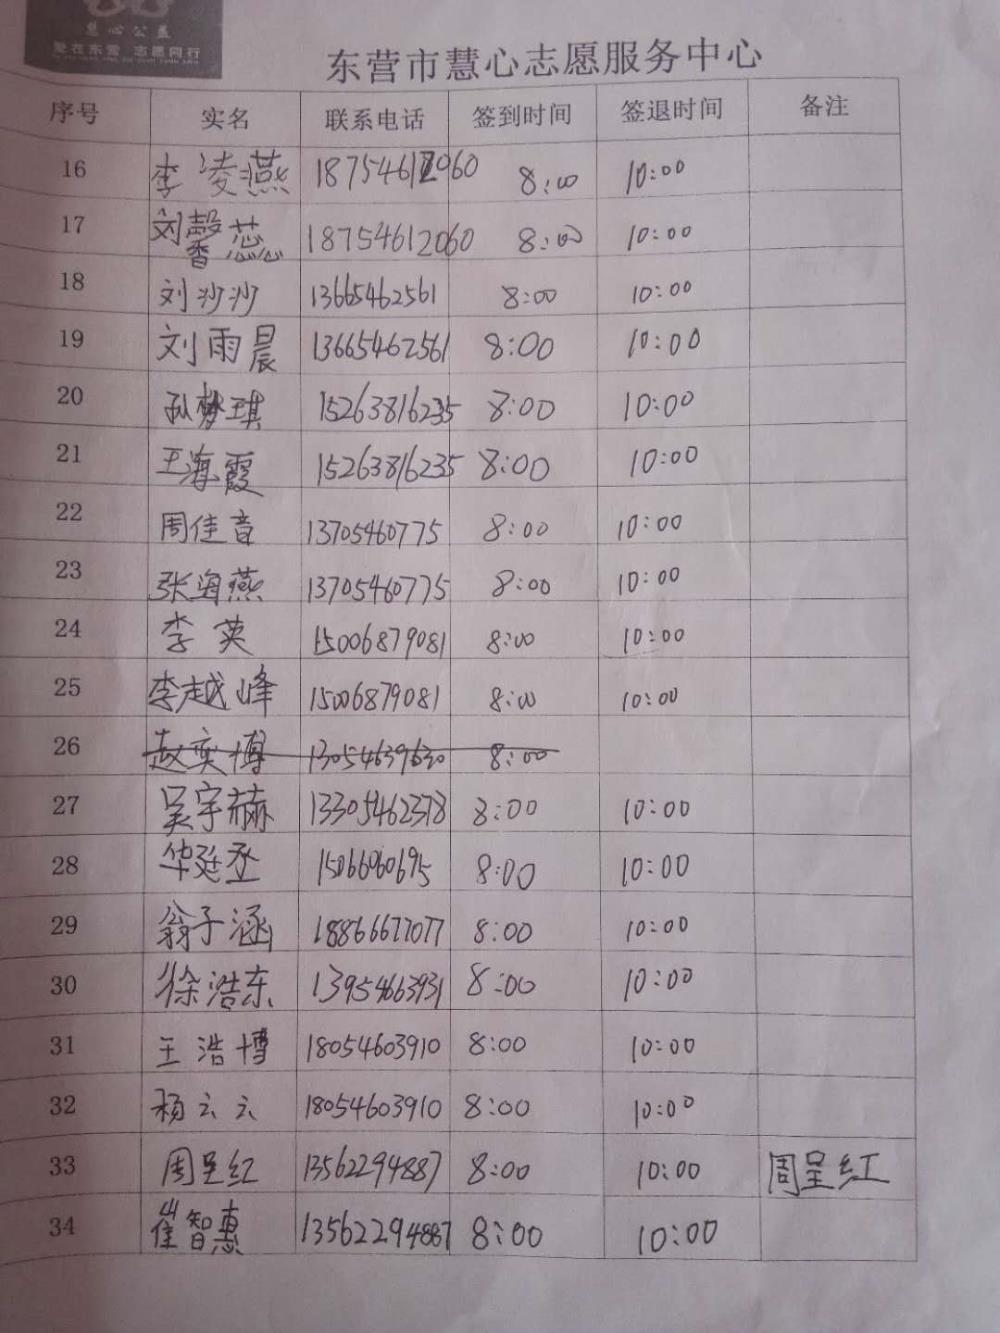 慧心公益
爱在东营 志愿同行
东营市慧心志愿服务中心
序号 实名 联系电话 签到时间 签退时间 备注
16 李凌燕 18754612060 8:00 10:00
17 刘馨蕊 18754612060 8:00 10:00
18 刘沙沙 13665462561 8:00 10:00
19 刘雨晨 13665462561 8:00 10:00
20 孙梦琪 15263816235 8:00 10:00
21 王海霞 15263816235 8:00 10:00
22 周佳音 13705460775 8:00 10:00
23 张海燕 13705460775 8:00 10:00
24 李英 15006879081 8:00 10:00
25 李越峰 15006879081 8:00 10:00
26 赵奕博 13054639630 8:00
27 吴宇赫 13305462378 8:00 10:00
28 华廷丞 15066060695 8:00 10:00
29 翁子涵 18866677077 8:00 10:00
30 徐浩东 13954663931 8:00 10:00
31 王浩博 18054603910 8:00 10:00
32 杨云云 18054603910 8:00 10:00
33 周呈红 13562294887 8:00 10:00 周呈红
34 崔智惠 13562294887 8:00 10:00